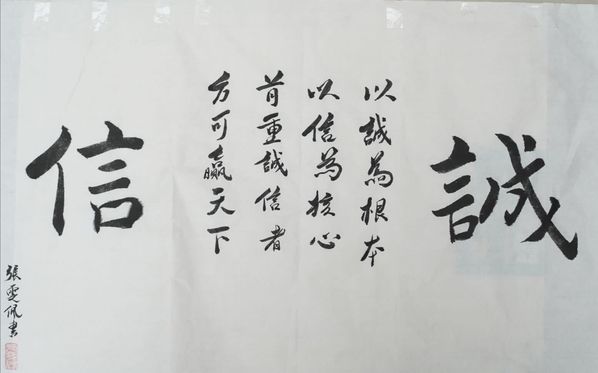 誠
以誠為根本
以信為核心
首重誠信者
方可贏天下
信
張雯佩書